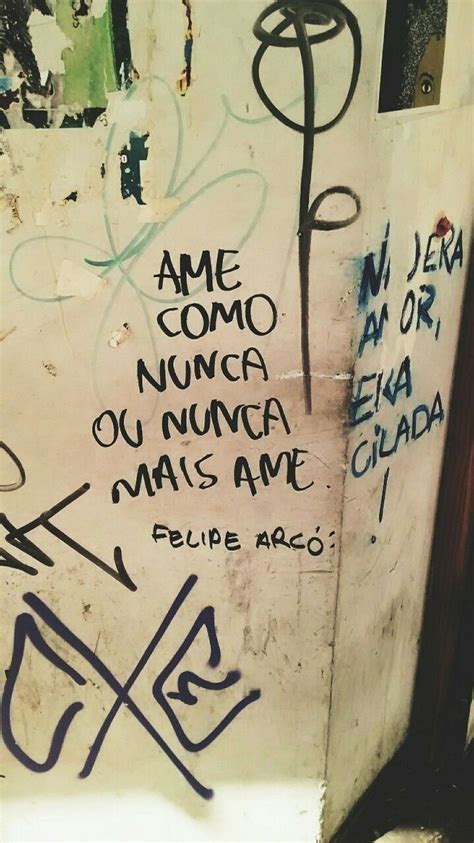 AME
COMO
NUNCA
OU NUNCA
MAIS AME.
FELIPE ARCÓ:
ERA
AMOR,
ERA
CILADA
!